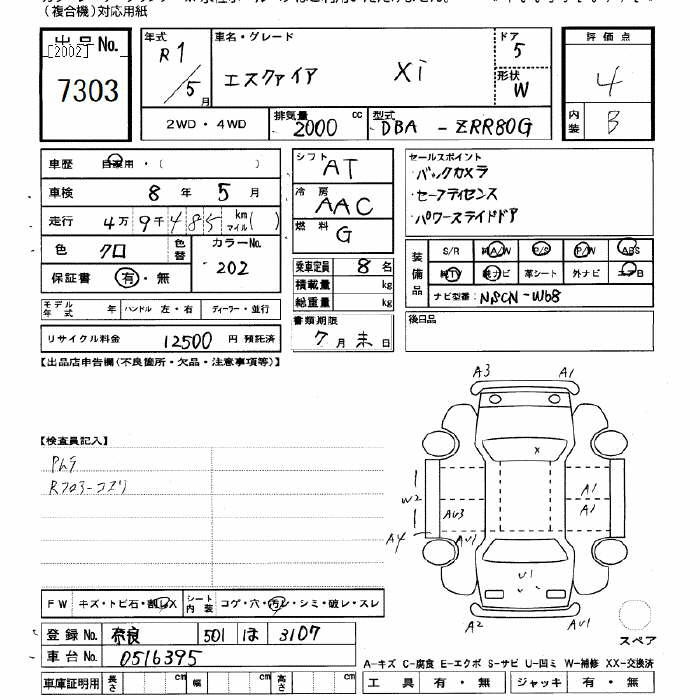 (複合機)対応用紙
出品No.
[2002]
7303
年式 R1/5月
車名・グレード エスクァイア Xi
ドア 5
形状 W
評価点 4
内装 B
2WD・4WD
排気量 2000 cc
型式 DBA - ZRR80G
車歴 自家用・( )
車検 8年 5月
走行 4万9千485 km マイル( )
色 クロ
色替
カラーNo. 202
保証書 有・無
シフト AT
冷房 AAC
燃料 G
乗車定員 8名
積載量 kg
総重量 kg
書類期限 7月末日
セールスポイント
・バックカメラ
・セーフティセンス
・パワースライドドア
装備品
S/R 純A/W P/S P/W ABS
純TV 純ナビ 革シート 外ナビ エアB
ナビ型番: NSCN-W68
後日品
モデル年式 年 ハンドル 左・右 ディーラー・並行
リサイクル料金 12500 円 預託済
【出品店申告欄(不良箇所・欠品・注意事項等)】
【検査員記入】
A3 A1
X
W2 A1
AU3 A1
A4 AU1
U1
A2 AU1
スペア
FW キズ・トビ石・割レX
シート内装 コゲ・穴・汚レ・シミ・破レ・スレ
登録No. 奈良 501 ほ 3107
車台No. 0516395
車庫証明用 長さ cm 幅 cm 高さ cm
A-キズ C-腐食 E-エクボ S-サビ U-凹ミ W-補修 XX-交換済
工具 有・無 ジャッキ 有・無